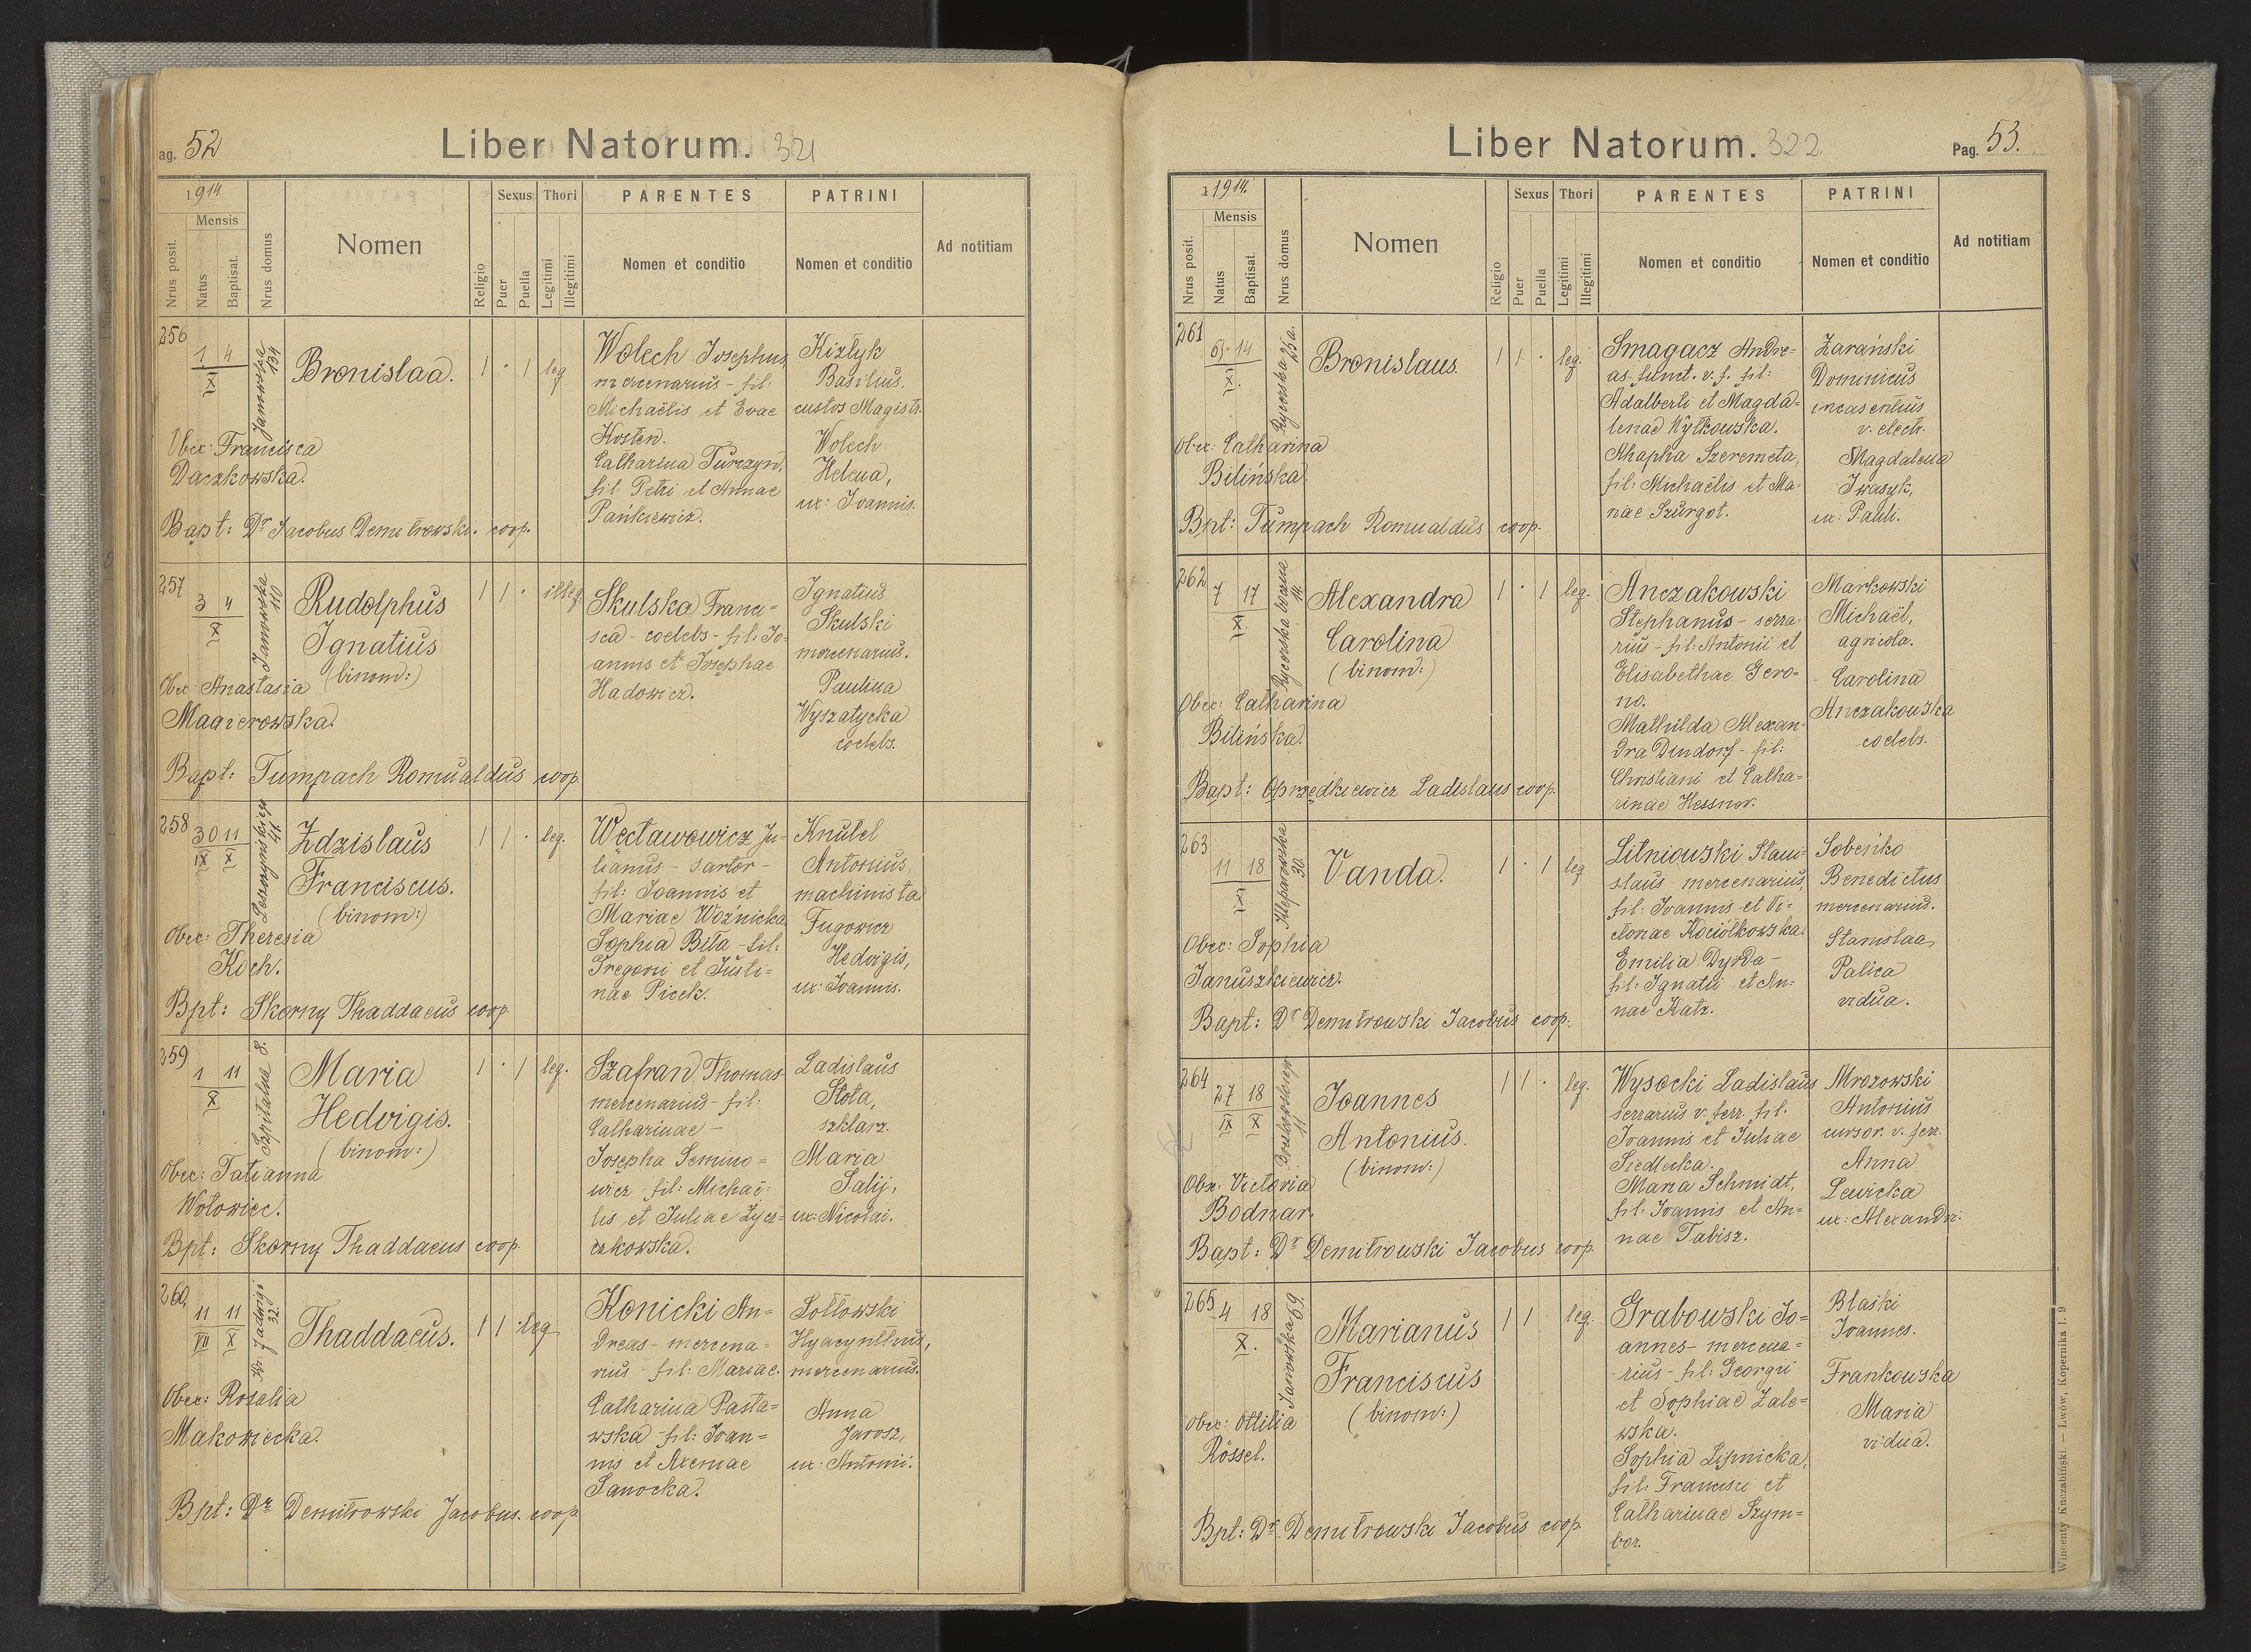 ag. 52
Liber Natorum. 321
1914.
Mensis
Nrus posit.
Natus
Baptisat.
Nrus domus
Nomen
Religio
Sexus
Puer
Puella
Thori
Legitimi
Illegitimi
PARENTES
Nomen et conditio
PATRINI
Nomen et conditio
Ad notitiam
256
1 4
X
Janowska
134
Bronislaa.
1 · 1 leg
Wolech Josephus,
mercenarius - fil:
Michaëlis et Evae
Kosten.
Catharina Turczyn,
fil: Petri et Annae
Pańkiewicz.
Kizłyk
Basilius.
custos Magistr.
Wolech
Helena,
ux: Joannis.
Obex: Francisca
Daczkowska.
Bapt: Dr Jacobus Demitrowski. coop.
257
3 4
X
Janowska
110
Rudolphus
Ignatius
(binom:)
1 1 · illeg.
Skulska Franci=
sca - coelebs - fil: Jo=
annis et Josephae
Hadowicz.
Ignatius
Skulski
mercenarius.
Paulina
Wyszatycka
coelebs.
Obex: Anastasia
Magierowska.
Bapt: Tumpach Romualdus coop.
258
30 11
IX X
41.
Zdzislaus
Franciscus.
(binom:)
1 1 · leg.
Węcławowicz Ju=
lianus - sartor -
fil: Joannis et
Mariae Woźnicka.
Sophia Biła - fil:
Gregorii et Justi=
nae Picek.
Knutel
Antonius
machinista.
Fugowicz
Hedvigis,
ux: Joannis.
Obex: Theresia
Koch.
Bpt: Skorny Thaddaeus coop.
259
1 11
X
Szpitalna 8.
Maria
Hedvigis.
(binom:)
1 · 1 leg.
Szafran Thomas
mercenarius - fil:
Catharinae -
Josepha Semino=
wicz - fil: Michaë=
lis et Juliae Życz=
czkowska.
Ladislaus
Stota,
szklarz.
Maria
Salij,
ux: Nicolai.
Obex: Tatianna
Wołowiec.
Bpt: Skorny Thaddaeus coop.
260
11 11
VII X
Kr. Jadwigi
32.
Thaddaeus.
1 1 · leg
Konicki An=
dreas - mercena=
rius - fil: Mariae.
Catharina Pasta=
wska - fil: Joan=
nis et Axeniae
Sanocka.
Sołłowski
Hyacynthus,
mercenarius.
Anna
Jarosz,
ux: Antonii.
Obex: Rosalia
Makowiecka.
Bpt: Dr Demitrowski Jacobus. coop
Liber Natorum. 322
Pag. 53.
1914.
Mensis
Nrus posit.
Natus
Baptisat.
Nrus domus
Nomen
Religio
Sexus
Puer
Puella
Thori
Legitimi
Illegitimi
PARENTES
Nomen et conditio
PATRINI
Nomen et conditio
Ad notitiam
261
14
X.
25a.
Bronislaus.
1 1 · leg.
Smagacz Andre=
as funct. v. f. fil:
Adalberti et Magda=
lenae Wytkowska.
Ahapha Szeremeta,
fil: Michaëlis et Ma=
nae Szurgot.
Zarański
Dominicus
incasentius
v. electr.
Magdalena
Iwasyk,
ux: Pauli.
Obex: Catharina
Bilińska.
Bpt: Tumpach Romualdus coop.
262
7 17
X.
Rycerska boczna
14.
Alexandra
Carolina
(binom:)
1 · 1 leg.
Anczakowski
Stephanus - serra=
rius - fil: Antonii et
Elisabethae Gero=
no.
Mathilda Alexan=
dra Dindorf - fil:
Christiani et Catha=
rinae Hessner.
Markowski
Michaël,
agricola.
Carolina
Anczakowska
coelebs.
Obex: Catharina
Bilińska.
Bapt: Oprzędkiewicz Ladislaus coop.
263
11 18
X
Kleparowska
30.
Vanda.
1 · 1 leg
Litniowski Stani=
slaus - mercenarius,
fil: Joannis et Vi=
ctoriae Kociółkowska.
Emilia Dyrda -
fil: Ignatii et An=
nae Katz.
Sobeńko
Benedictus
mercenarius.
Stanislaa
Palica
vidua.
Obex: Sophia
Januszkiewicz.
Bapt: Dr Demitrowski Jacobus coop.
264
27 18
IX X
11
Joannes
Antonius.
(binom:)
1 1 · leg.
Wysocki Ladislaus
serrarius v. ferr. fil.
Joannis et Juliae
Siedlecka.
Maria Schmidt,
fil: Joannis et An=
nae Tabisz.
Mrozowski
Antonius
cursor. v. ferr.
Anna
Lewicka
ux: Alexandri.
Obex: Victoria
Bodnar.
Bapt: Dr Demitrowski Jacobus coop.
265
4 18
X.
Janowska 69.
Marianus
Franciscus
(binom:)
1 1 · leg.
Grabowski Jo=
annes - mercena=
rius - fil: Georgii
et Sophiae Zale=
wska.
Sophia Lipnicka,
fil: Francisci et
Catharinae Szym=
bor.
Błaski
Joannes.
Frankowska
Maria
vidua.
Obex: Ottilia
Rössel.
Bpt: Dr Demitrowski Jacobus coop.
Wincenty Kuczabiński. — Lwów, Kopernika l. 9